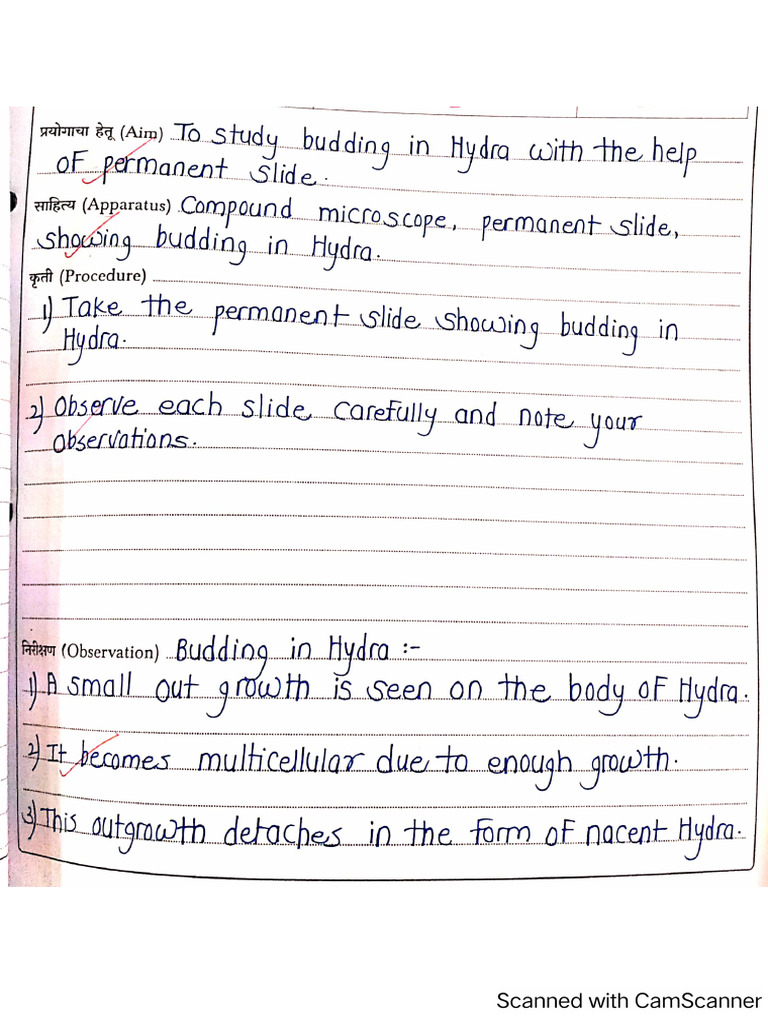 प्रयोगाचा हेतू (Aim) To study budding in Hydra with the help
of permanent slide.
साहित्य (Apparatus) Compound microscope, permanent slide,
showing budding in Hydra.
कृती (Procedure)
1) Take the permanent slide showing budding in
Hydra.
2) Observe each slide carefully and note your
observations.
निरीक्षण (Observation) Budding in Hydra :-
1) A small out growth is seen on the body of Hydra.
2) It becomes multicellular due to enough growth.
3) This outgrowth detaches in the form of nacent Hydra.
Scanned with CamScanner